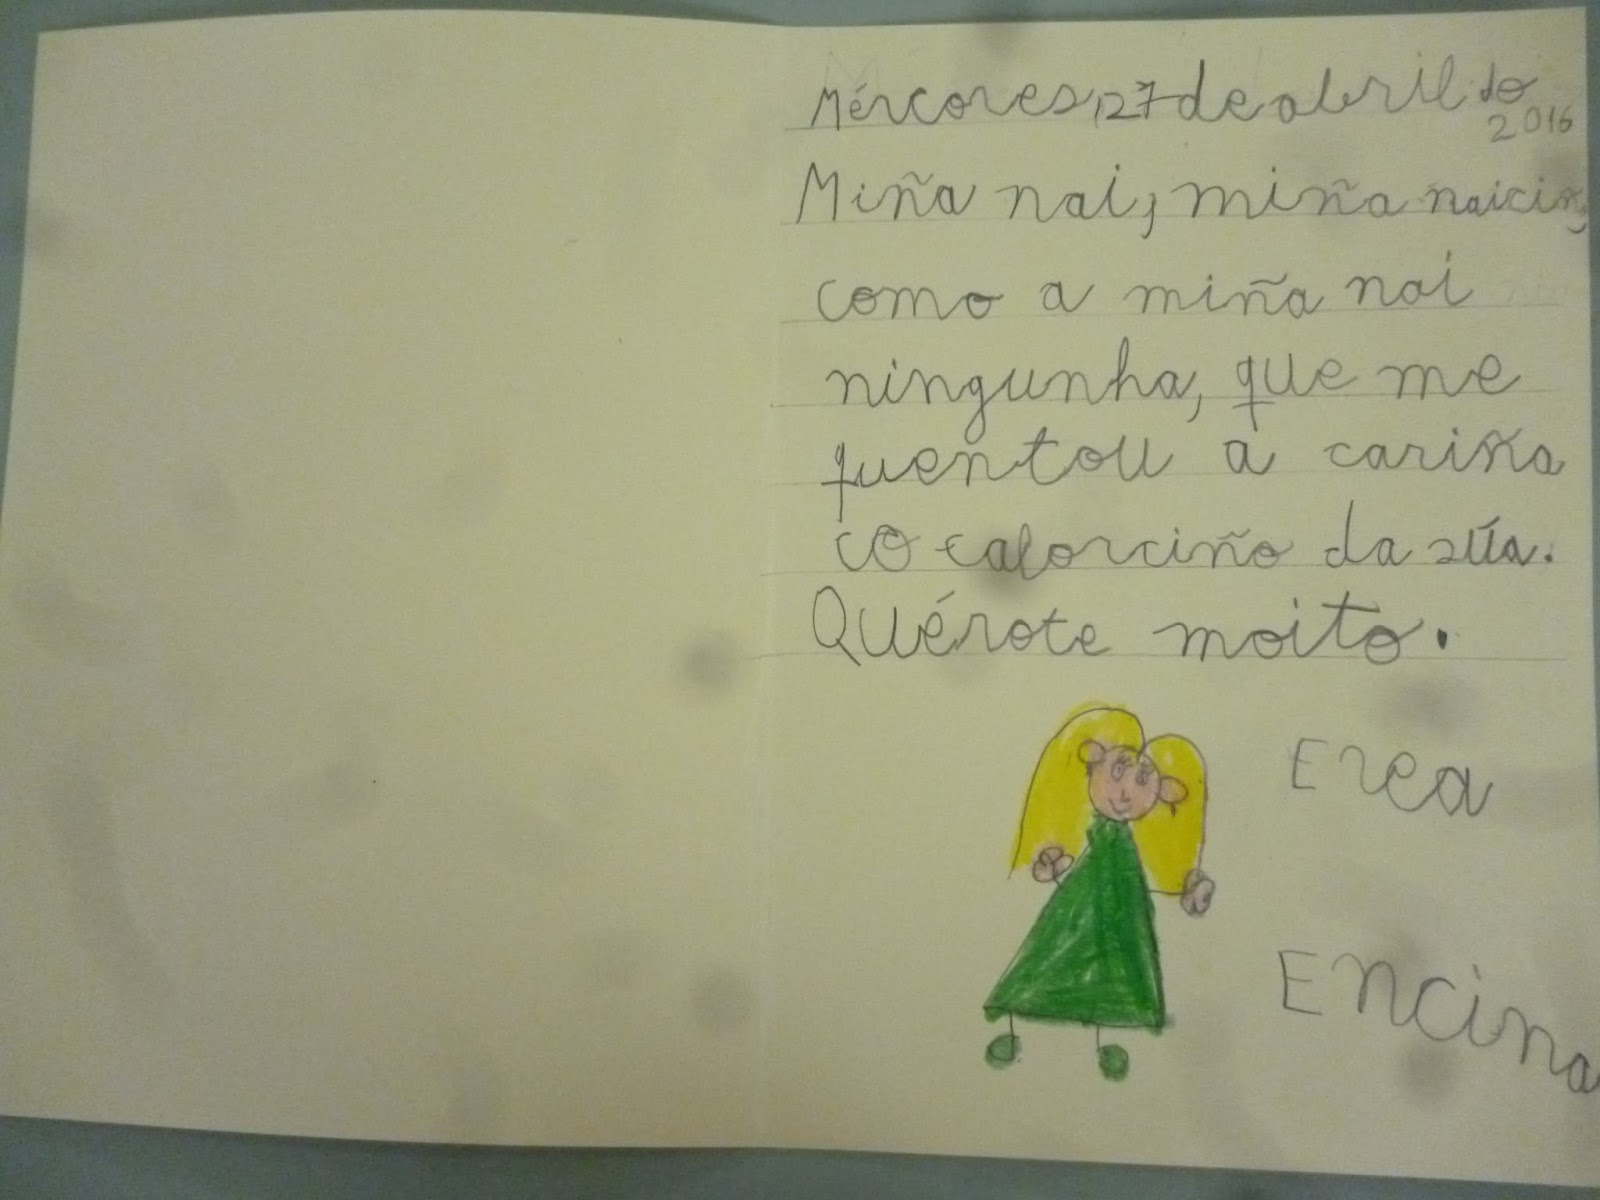 Mércores, 27 de abril do
2016
Miña nai, miña naiciña,
como a miña nai
ningunha, que me
quentou a cariña
co calorciño da súa.
Quérote moito.
Erea
Encina